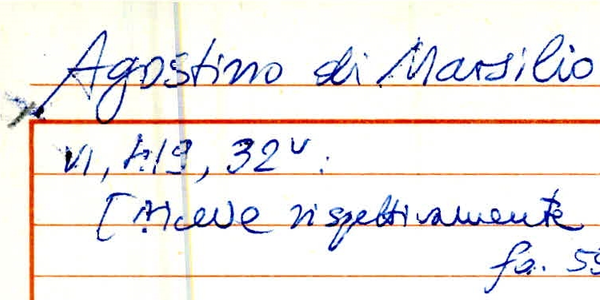 Agostino di Marsilio
VI, 419, 32v.
[Riceve rispettivamente
fa. 59